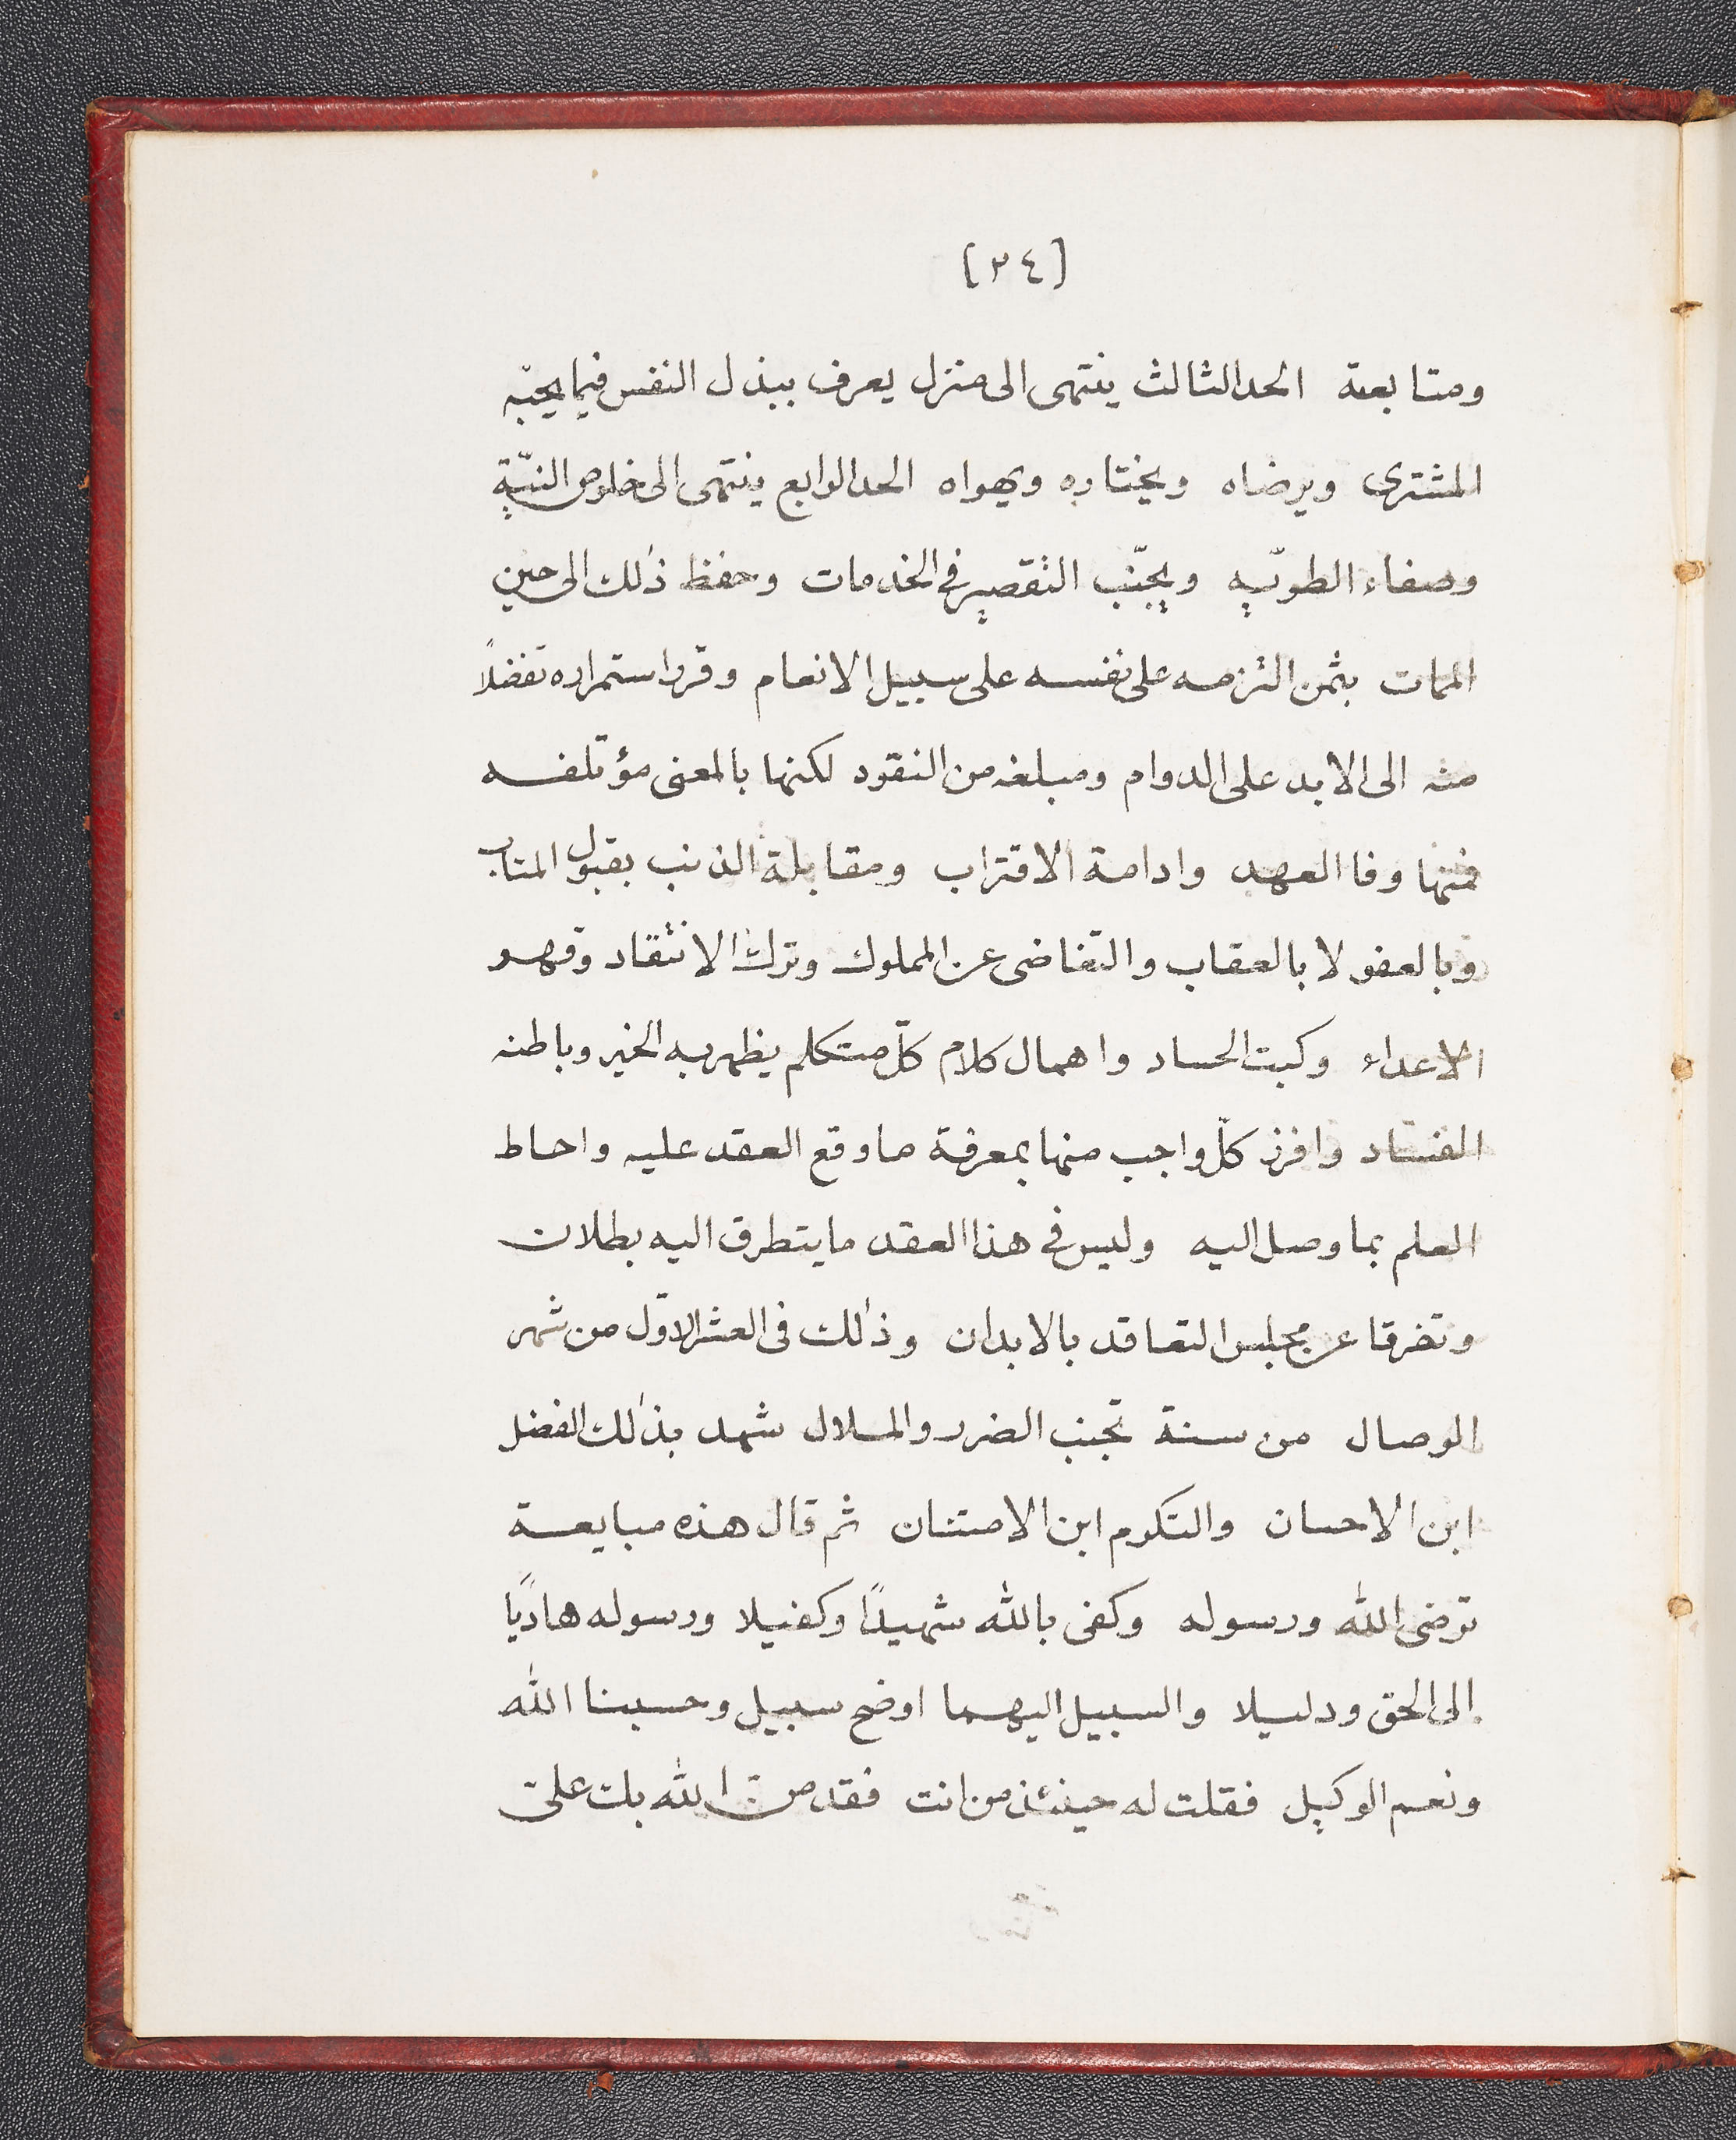 [٣٤]
ومتابعة الحد الثالث ينتهى الى منزل يعرف ببذل النفس فيما يحبّه
المشترى ويرضاه ويختاره ويهواه الحد الرابع ينتهى الى خلوص النيّة
وصفاء الطويّه ويجنّب التقصير فى الخدمات وحفظ ذلك الى حين
الممات بثمن التزمه على نفسه على سبيل الانعام وقرر استمراره تفضلاً
منه الى الابد على الدوام ومبلغه من النقود لكنها بالمعنى مؤتلفه
فمنها وفا العهد وادامة الاقتراب ومقابلة الذنب بقبول المتاب
وبالعفو لا بالعقاب والتغاضى عن المملوك وترك الانتقاد وقهر
الاعداء وكبت الحساد واهمال كلام كلّ متكلم يظهر به الخير وباطنه
الفساد وافرز كلّ واجب منها بمعرفة ما وقع العقد عليه واحاط
العلم بما وصل اليه وليس فى هذا العقد ما يتطرق اليه بطلان
وتفرقا عن مجلس التعاقد بالابدان وذلك فى العشر الاوّل من شهر
الوصال من سنة تجنب الضرر والملال شهد بذلك الفضل
ابن الاحسان والتكرم ابن الامتنان ثم قال هذه مبايعة
ترضى الله ورسوله وكفى بالله شهيداً وكفيلا ورسوله هادياً
الى الحق ودليلا والسبيل اليهما اوضح سبيل وحسبنا الله
ونعم الوكيل فقلت له حينئذ من انت فقد منّ الله بك علىّ